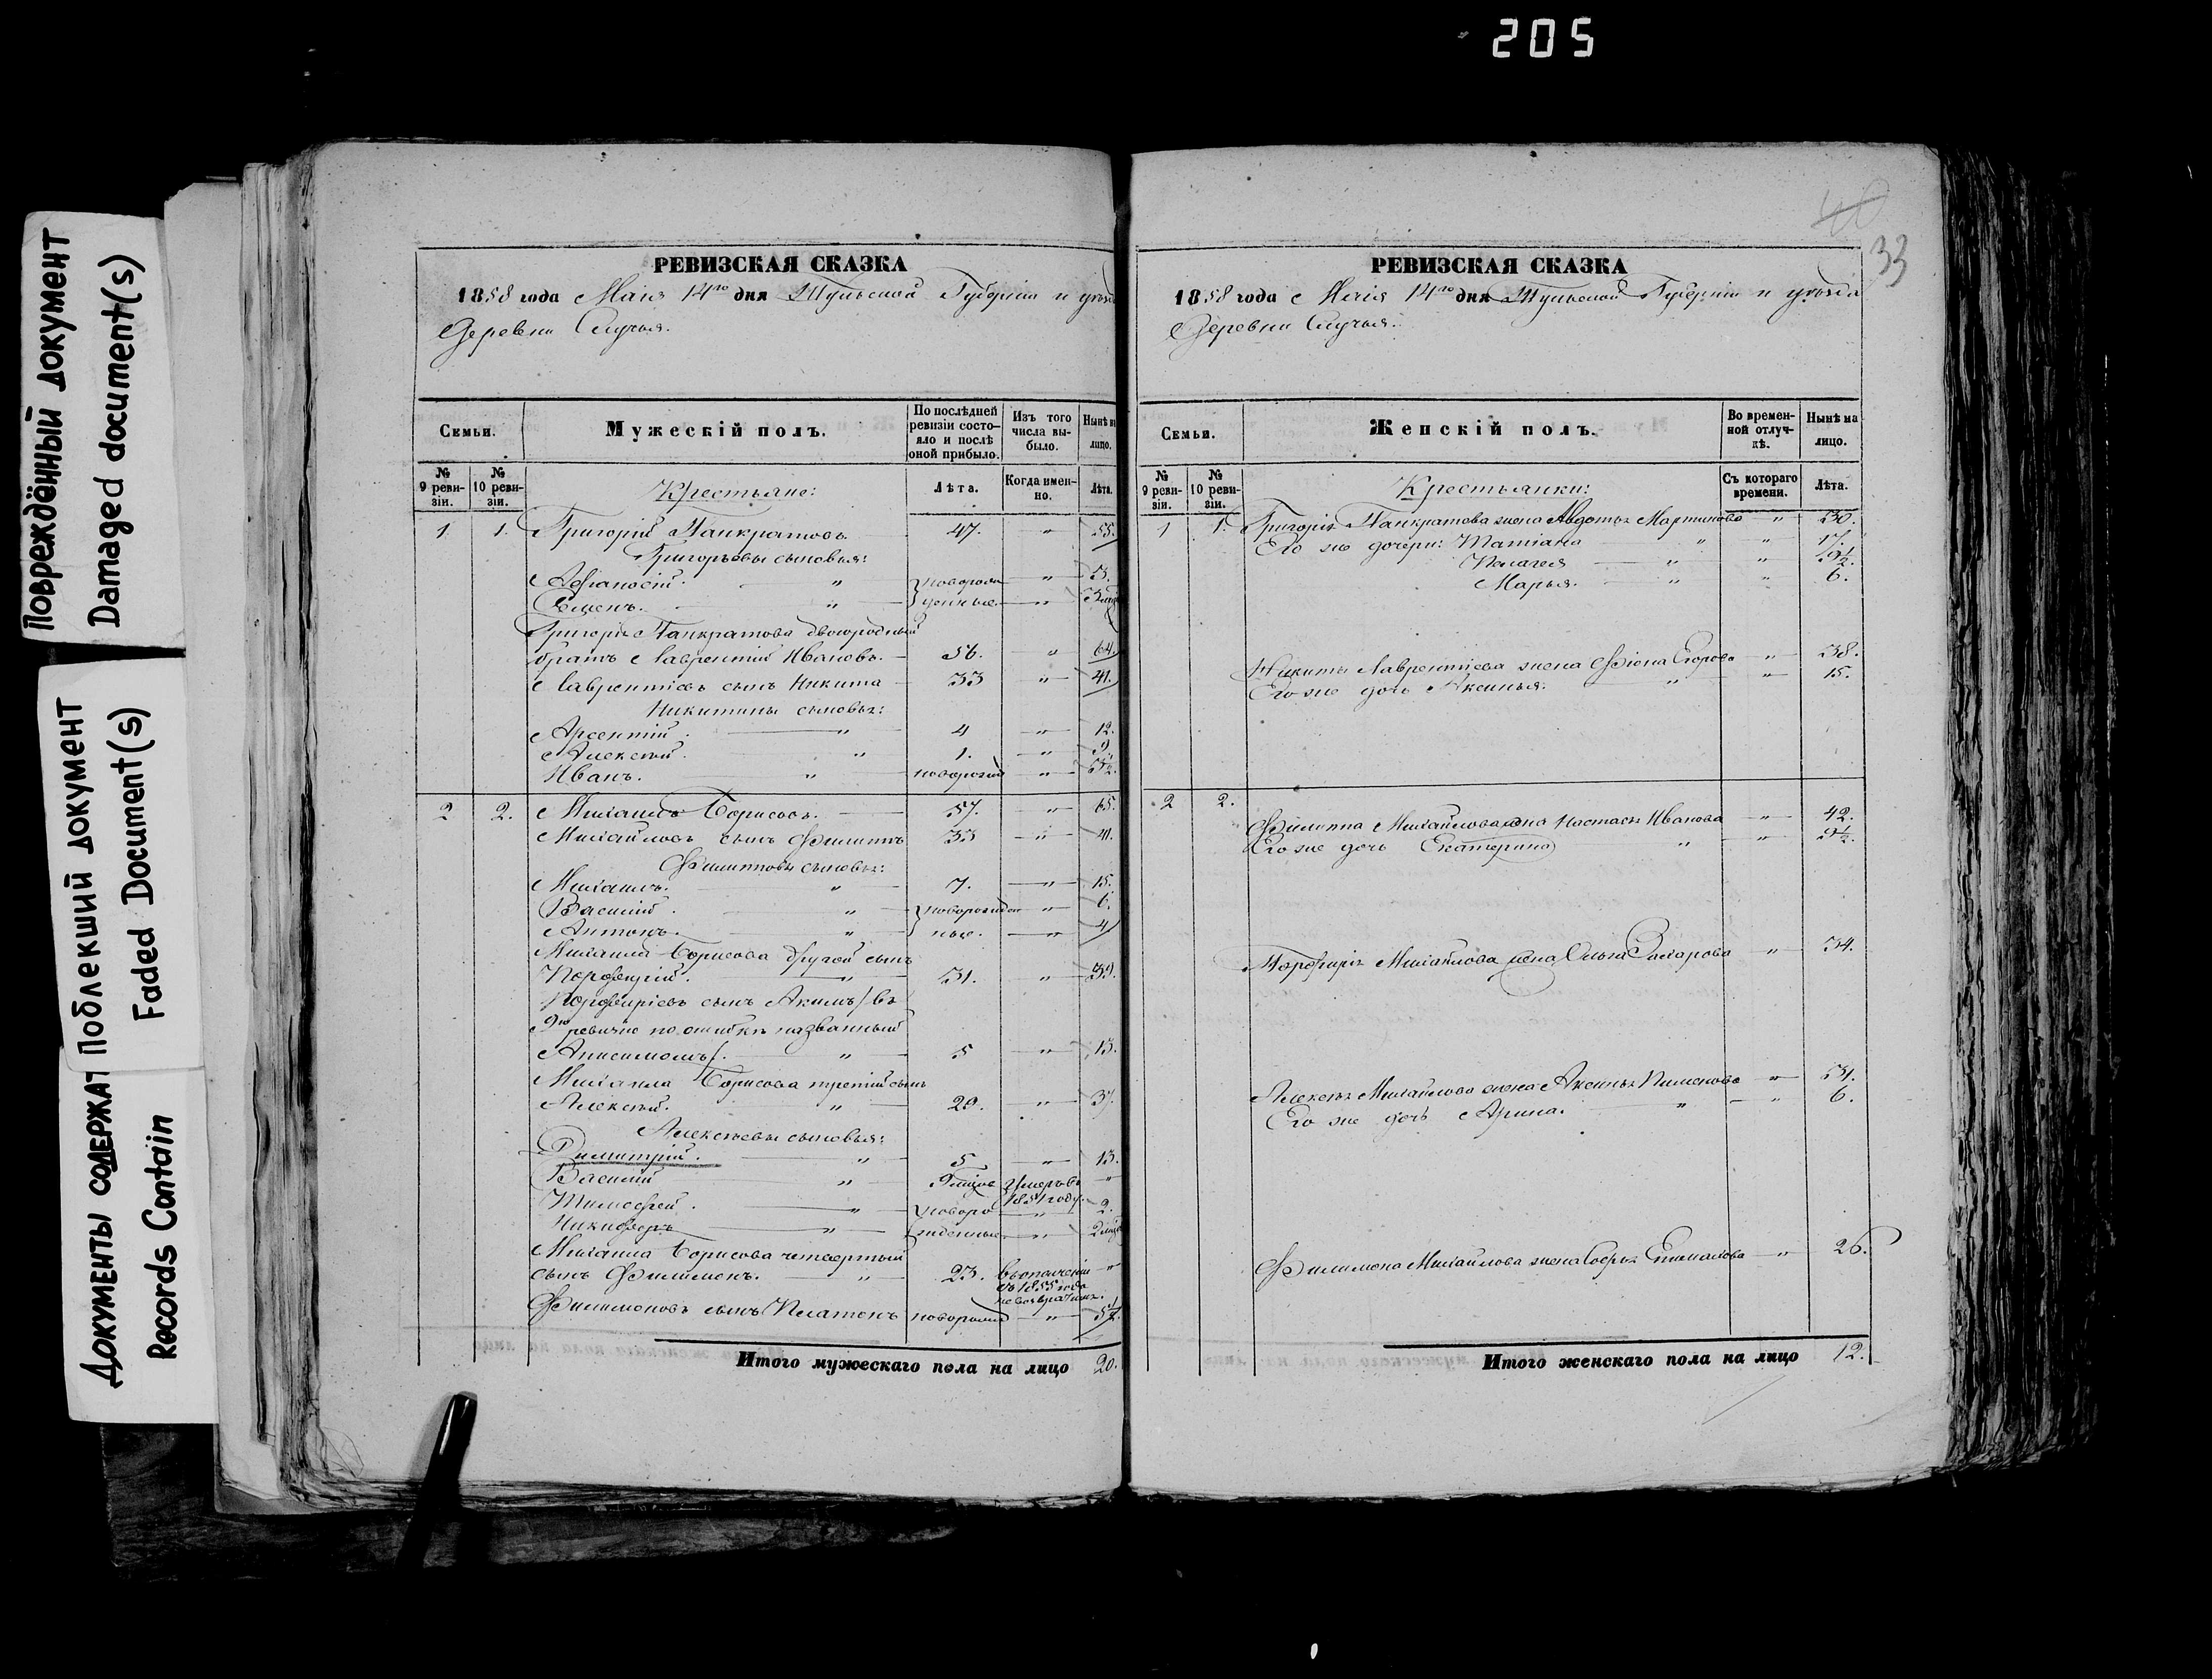 205
Повреждённый документ
Damaged document(s)
Поблекший документ
Faded Document(s)
Документы содержат
Records Contain
РЕВИЗСКАЯ СКАЗКА
1858 года Маія 14го дня Тульской Губерніи и уезда
Деревни Случья.
Семьи.
Мужескій полъ.
По послѣдней ревизіи состо-
яло и послѣ оной прибыло.
Изъ того числа вы-
было.
Нынѣ на лицо.
№ 9 реви-
зіи.
№ 10 реви-
зіи.
Крестьяне:
Лѣта.
Когда имен-
но.
Лѣта.
1. 1. Григорій Панкратовъ. 47. " 55.
Григорьевы сыновья:
Афанасій. " новорож " 3.
Семенъ. " денные "
Григорья Панкратова двоюродный
братъ Лаврентій Ивановъ. 56. " 64.
Лаврентіевъ сынъ Никита 33 " 41.
Никитины сыновья:
Арсентій. " 4 " 12.
Алексей. " 1. " 9.
Иванъ. " "
2 2. Михаилъ Борисовъ. 57. " 65.
Михайловъ сынъ Филиппъ 33 " 41.
Филипповы сыновья:
Михаилъ. " 7. " 15.
Василій. " новорожден " 6.
Антонъ. " ные. " 4
Михаила Борисова другой сынъ
Порфирій. " 31. " 39.
Порфиріевъ сынъ Акимъ /въ
9ю ревизію по ошибкѣ названный
Анисимомъ/. " 5 " 13.
Михаила Борисова третій сынъ
Алексей. " 29. " 37.
Алексеевы сыновья:
Димитрій. " 5 " 13.
Василій " Умеръ въ "
1851 году.
Тимофей. " новоро " 2.
Никифоръ " жденные "
Михаила Борисова четвертый
сынъ Филимонъ. " 23. въ ополченіи "
съ 1855 года
не возвратился.
Филимоновъ сынъ Платонъ "
Итого мужескаго пола на лицо 20.
40
33
РЕВИЗСКАЯ СКАЗКА
1858 года Маія 14го дня Тульской Губерніи и уезда
Деревни Случья.
Семьи.
Женскій полъ.
Во времен-
ной отлуч-
кѣ.
Нынѣ на лицо.
№ 9 реви-
зіи.
№ 10 реви-
зіи.
Крестьянки:
Съ котораго времени.
Лѣта.
1 1. Григорья Панкратова жена Авдотья Мартинова "
Его же дочери: Татіана " " 17.
Пелагея " "
Марья. " " 6.
Никиты Лаврентіева жена Фіона Егорова " 38.
Его же дочь Аксинья. " " 15.
2 2. Филиппа Михайлова жена Настасья Иванова " 42.
Его же дочь Екатерина " "
Порфирія Михайлова жена Ольга Захарова " 34.
Алексея Михайлова жена Аксинья Пименова "
Его же дочь Арина. " " 6.
Филимона Михайлова жена Софья " 26.
Итого женскаго пола на лицо 12.